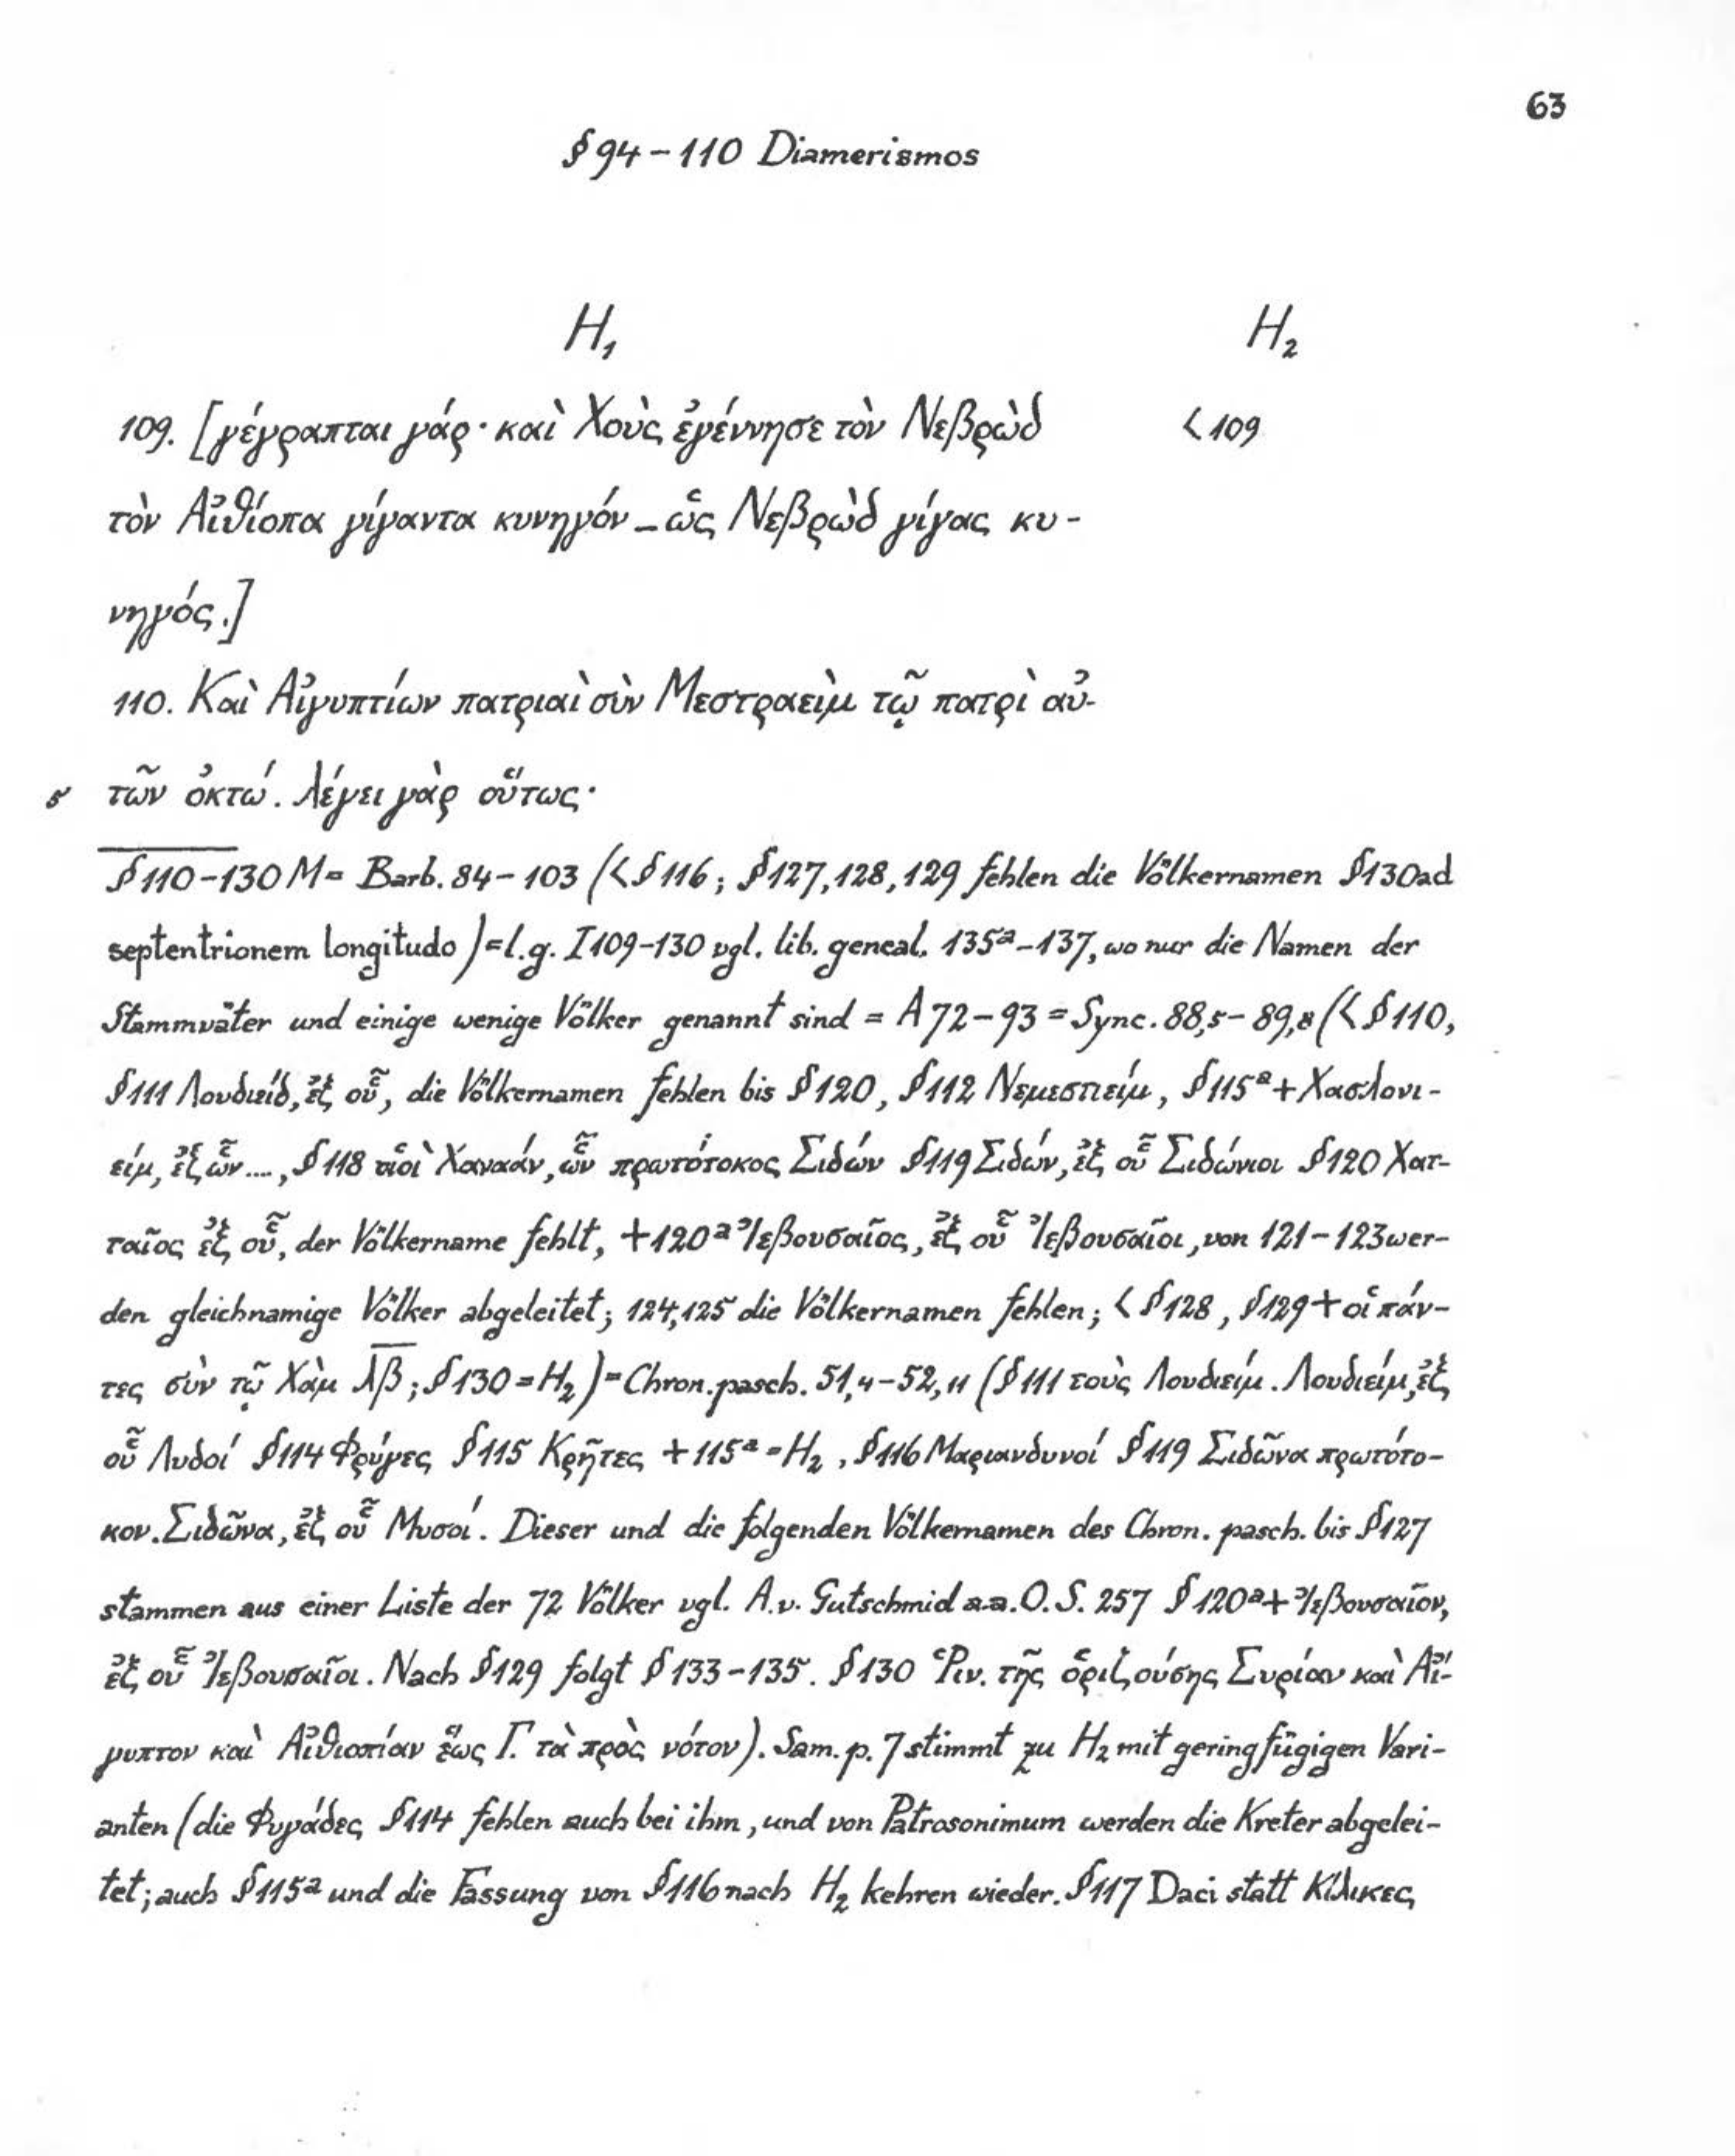 63
§ 94 – 110 Diamerismos
H₁ H₂
109. [γέγραπται γάρ· καὶ Χοὺς ἐγέννησε τὸν Νεβρὼδ < 109
τὸν Αἰθίοπα γίγαντα κυνηγόν – ὡς Νεβρὼδ γίγας κυ-
νηγός.]
110. Καὶ Αἰγυπτίων πατριαὶ σὺν Μεστραεὶμ τῷ πατρὶ αὐ-
5 τῶν ὀκτώ. λέγει γὰρ οὕτως·
§ 110–130 M = Barb. 84–103 (< § 116; § 127, 128, 129 fehlen die Völkernamen § 130 ad
septentrionem longitudo) = l.g. I 109–130 vgl. lib. geneal. 135ᵃ–137, wo nur die Namen der
Stammväter und einige wenige Völker genannt sind = A 72–93 = Sync. 88,5–89,8 (< § 110,
§ 111 Λουδιείδ, ἐξ οὗ, die Völkernamen fehlen bis § 120, § 112 Νεμεσπείμ, § 115ᵃ + Χασλονι-
είμ, ἐξ ὧν ...., § 118 υἱοὶ Χαναάν, ὧν πρωτότοκος Σιδών § 119 Σιδών, ἐξ οὗ Σιδώνιοι § 120 Χατ-
ταῖος ἐξ οὗ, der Völkername fehlt, + 120ᵃ Ἰεβουσαῖος, ἐξ οὗ Ἰεβουσαῖοι, von 121–123 wer-
den gleichnamige Völker abgeleitet; 124, 125 die Völkernamen fehlen; < § 128, § 129 + οἱ πάν-
τες σὺν τῷ Χὰμ λ̅β̅; § 130 = H₂) = Chron. pasch. 51,4–52,11 (§ 111 τοὺς Λουδιείμ. Λουδιείμ, ἐξ
οὗ Λυδοί § 114 Φρύγες § 115 Κρῆτες + 115ᵃ = H₂, § 116 Μαριανδυνοί § 119 Σιδῶνα πρωτότο-
κον. Σιδῶνα, ἐξ οὗ Μυσοί. Dieser und die folgenden Völkernamen des Chron. pasch. bis § 127
stammen aus einer Liste der 72 Völker vgl. A.v. Gutschmid a.a.O. S. 257 § 120ᵃ + Ἰεβουσαῖον,
ἐξ οὗ Ἰεβουσαῖοι. Nach § 129 folgt § 133–135. § 130 Ῥιν. τῆς ὁριζούσης Συρίαν καὶ Αἴ-
γυπτον καὶ Αἰθιοπίαν ἕως Γ. τὰ πρὸς νότον). Sam. p. 7 stimmt zu H₂ mit geringfügigen Vari-
anten (die Φυγάδες § 114 fehlen auch bei ihm, und von Patrosonimum werden die Kreter abgelei-
tet; auch § 115ᵃ und die Fassung von § 116 nach H₂ kehren wieder. § 117 Daci statt Κίλικες,